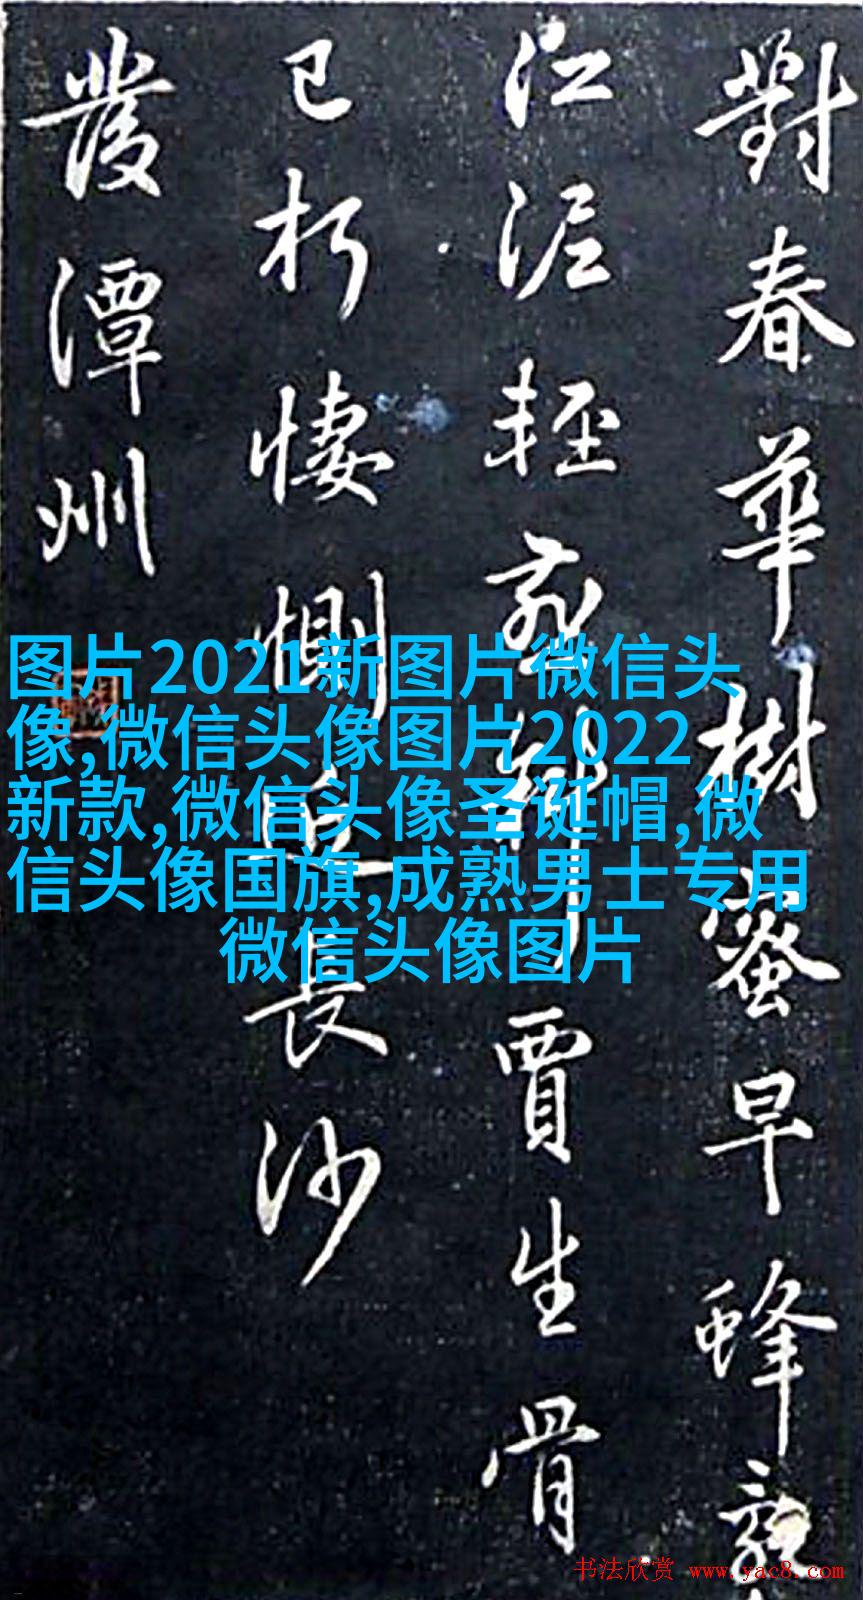 對春華樹蜜早蜂亂
江泥輕燕斜賈生骨
已朽悽惻近長沙
發潭州
图片2021新图片微信头
像,微信头像图片2022
新款,微信头像圣诞帽,微
信头像国旗,成熟男士专用
微信头像图片
书法欣赏 www.yac8.com